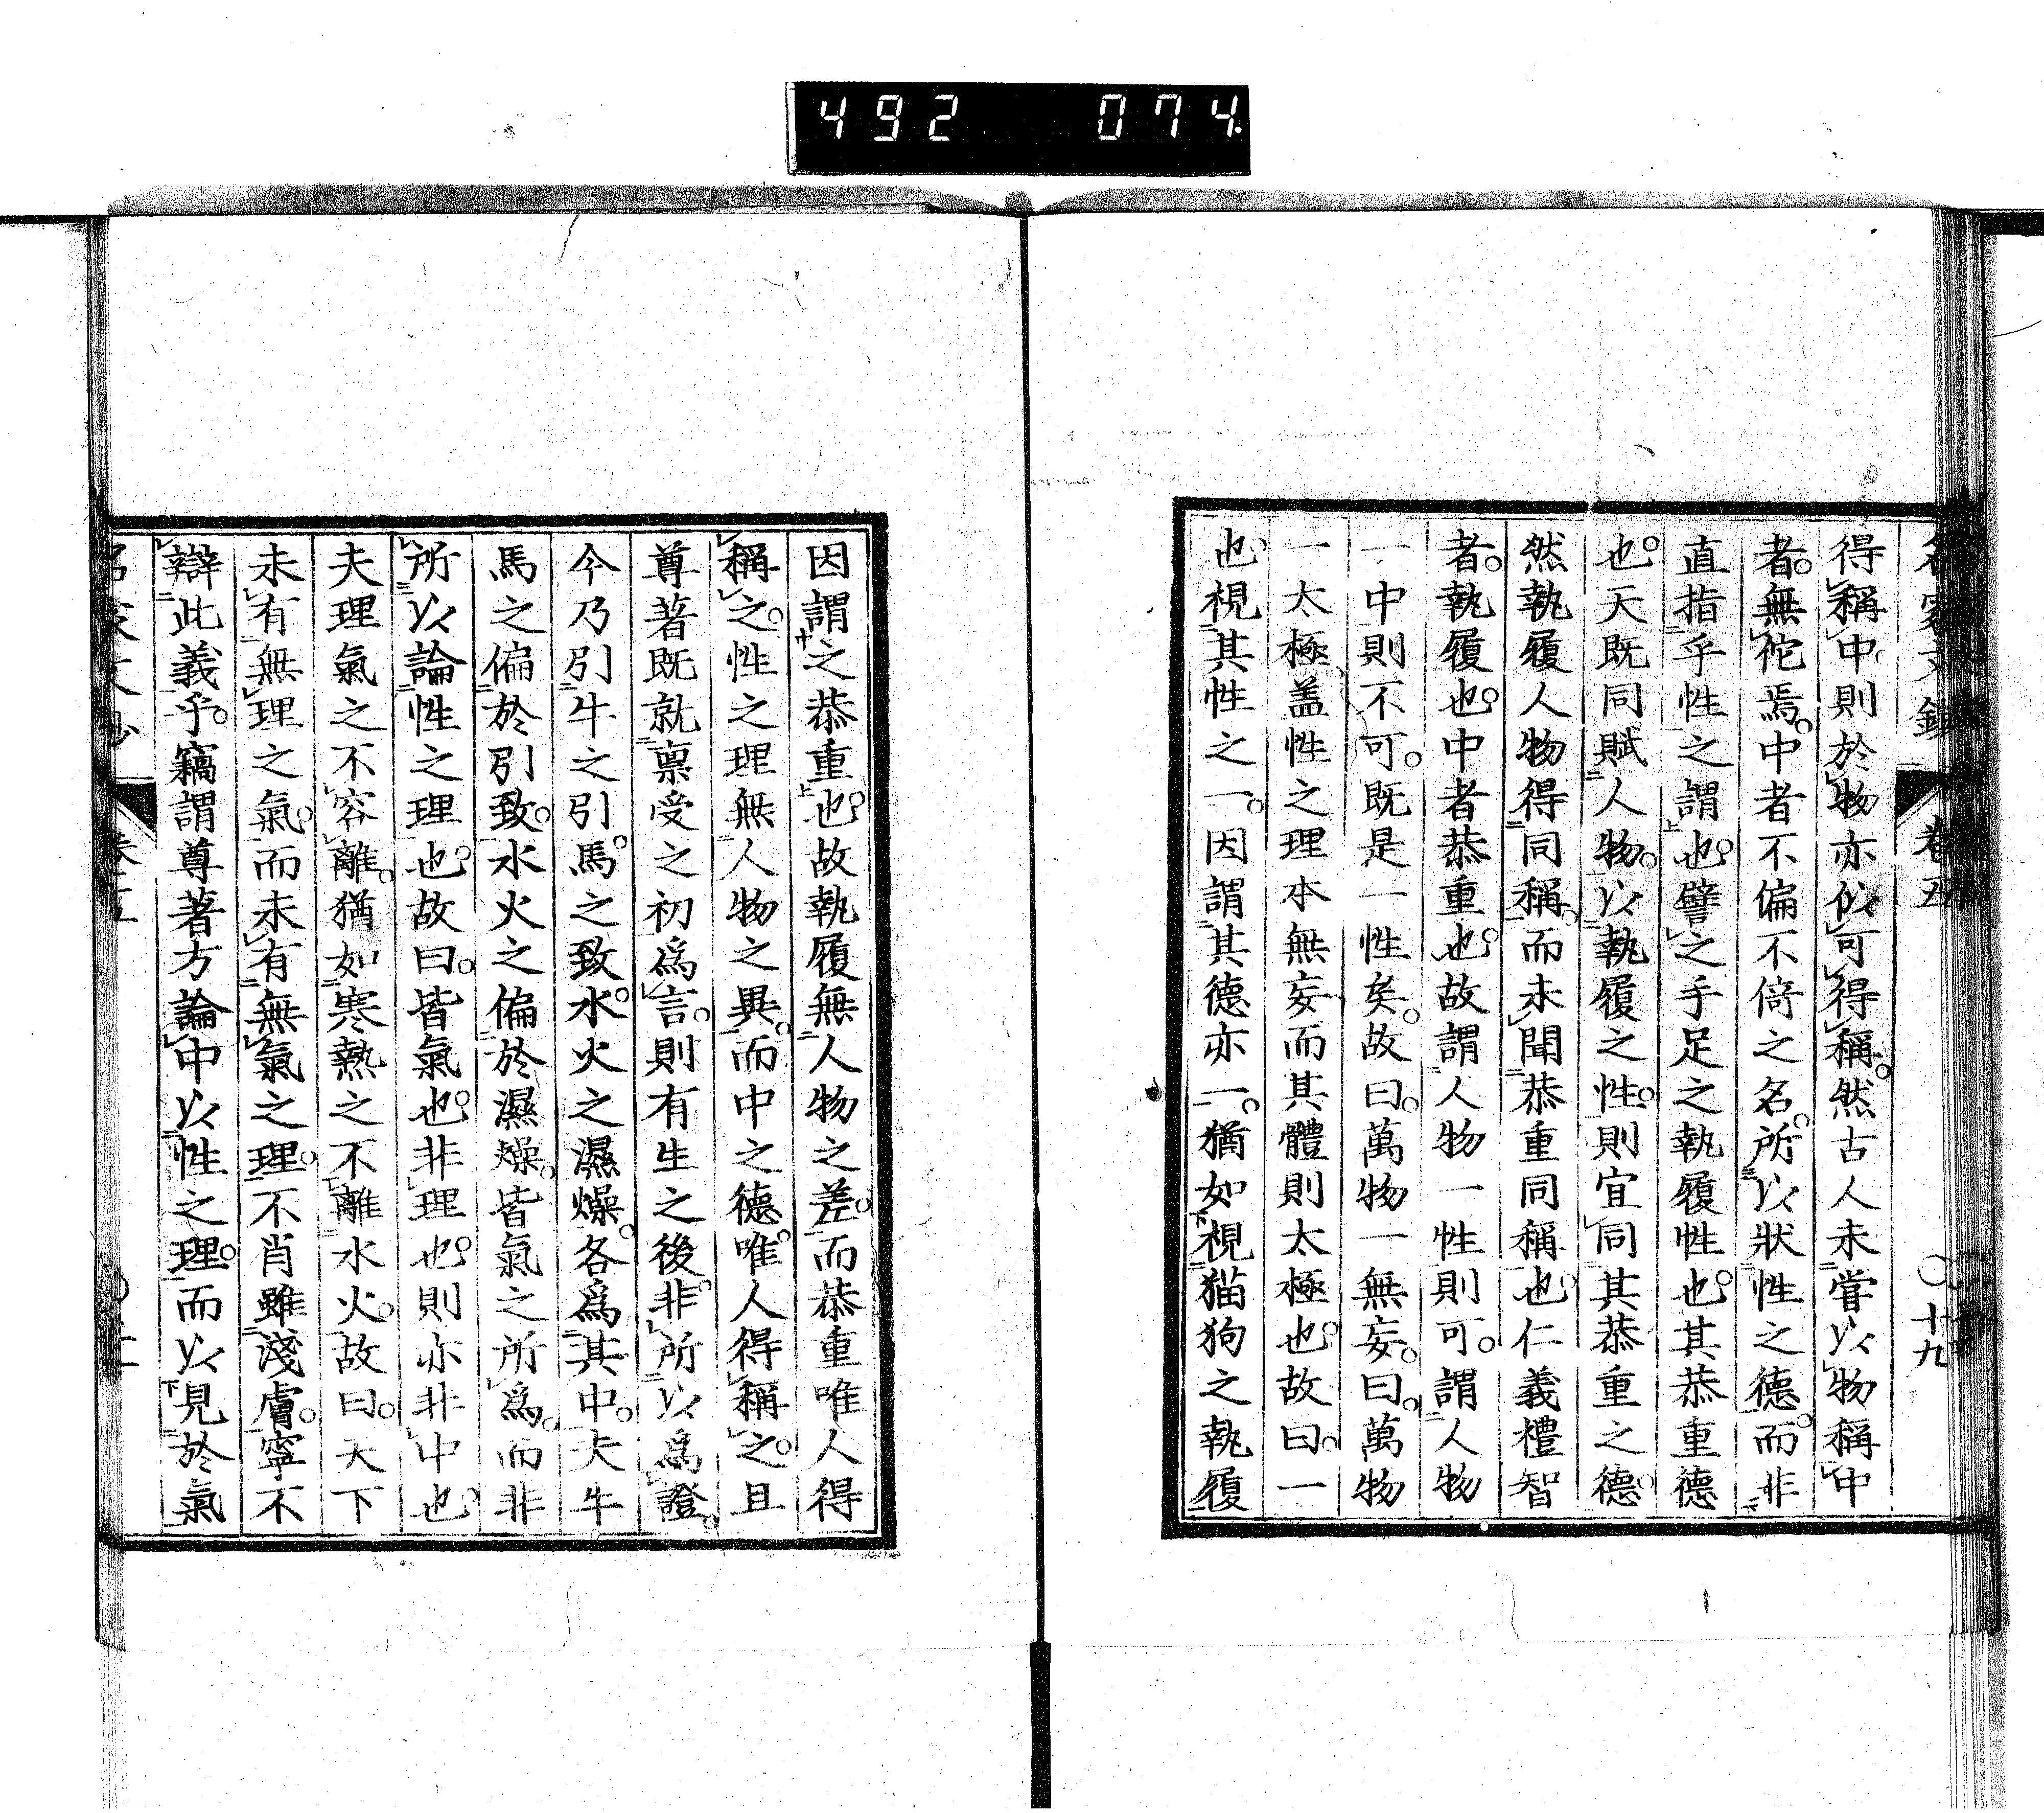 492 074
名家文鈔 卷五 〇十九
得稱中則於物亦似可得稱。然古人未嘗以物稱中
者。無佗焉。中者不偏不倚之名。所以狀性之德。而非
直指乎性之謂也。譬之手足之執履性也。其恭重德
也。天既同賦人物。以執履之性。則宜同其恭重之德。
然執履人物得同稱。而未聞恭重同稱也。仁義禮智
者。執履也。中者恭重也。故謂人物一性則可。謂人物
一中則不可。既是一性矣。故曰。萬物一無妄。曰。萬物
一太極盖性之理本無妄而其體則太極也。故曰。一
也視其性之一。因謂其德亦一。猶如視猫狗之執履
因謂之恭重也。故執履無人物之差。而恭重唯人得
稱之。性之理無人物之異。而中之德。唯人得稱之。且
尊著既就禀受之初爲言。則有生之後。非所以爲證。
今乃引牛之引。馬之致。水火之濕燥。各爲其中。夫牛
馬之偏於引致。水火之偏於濕燥。皆氣之所爲。而非
所以論性之理也。故曰。皆氣也。非理也。則亦非中也。
夫理氣之不容離。猶如寒熱之不離水火。故曰。天下
未有無理之氣。而未有無氣之理。不肖雖淺膚。寧不
辯此義乎。竊謂尊著方論中以性之理。而以見於氣
名家文鈔 卷五